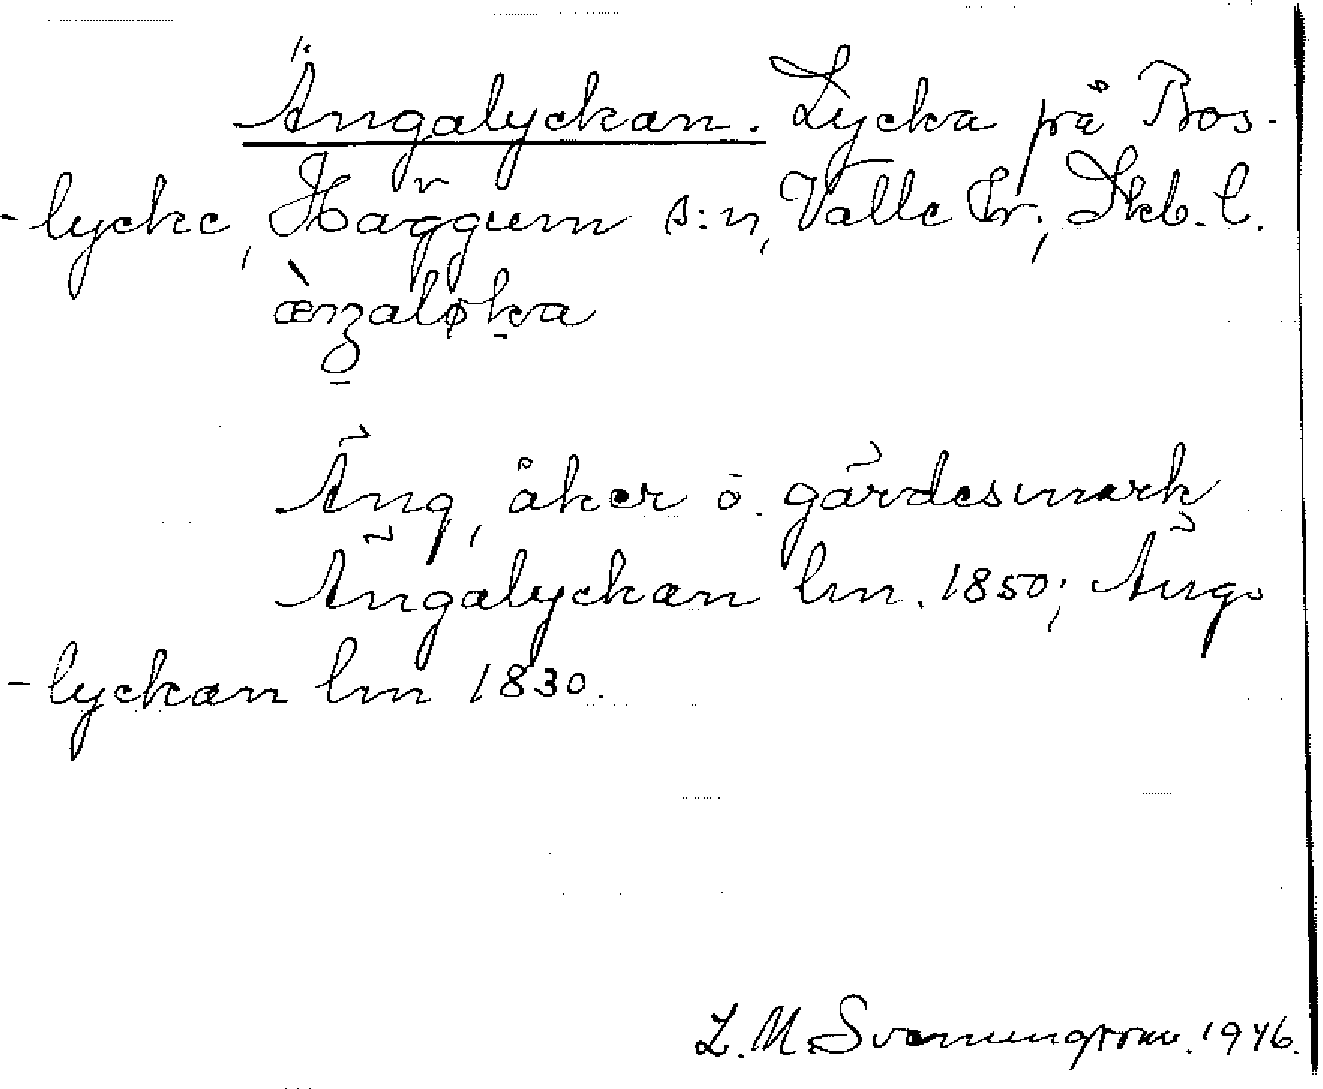 Ängalyckan. Lycka på Bos-
-lycke, Häggum s:n, Valle hr, Skb. l.
Äng, åker o. gärdesmark
Ängalyckan lm. 1850; Äng-
-lyckan lm 1830.
L. M. Svenungsson. 1946.